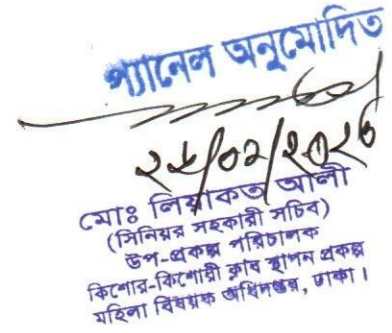 প্যানেল অনুমোদিত
মোঃ লিয়াকত আলী
(সিনিয়র সহকারী সচিব)
উপ-প্রকল্প পরিচালক
কিশোর-কিশোরী ক্লাব স্থাপন প্রকল্প
মহিলা বিষয়ক অধিদপ্তর, ঢাকা।